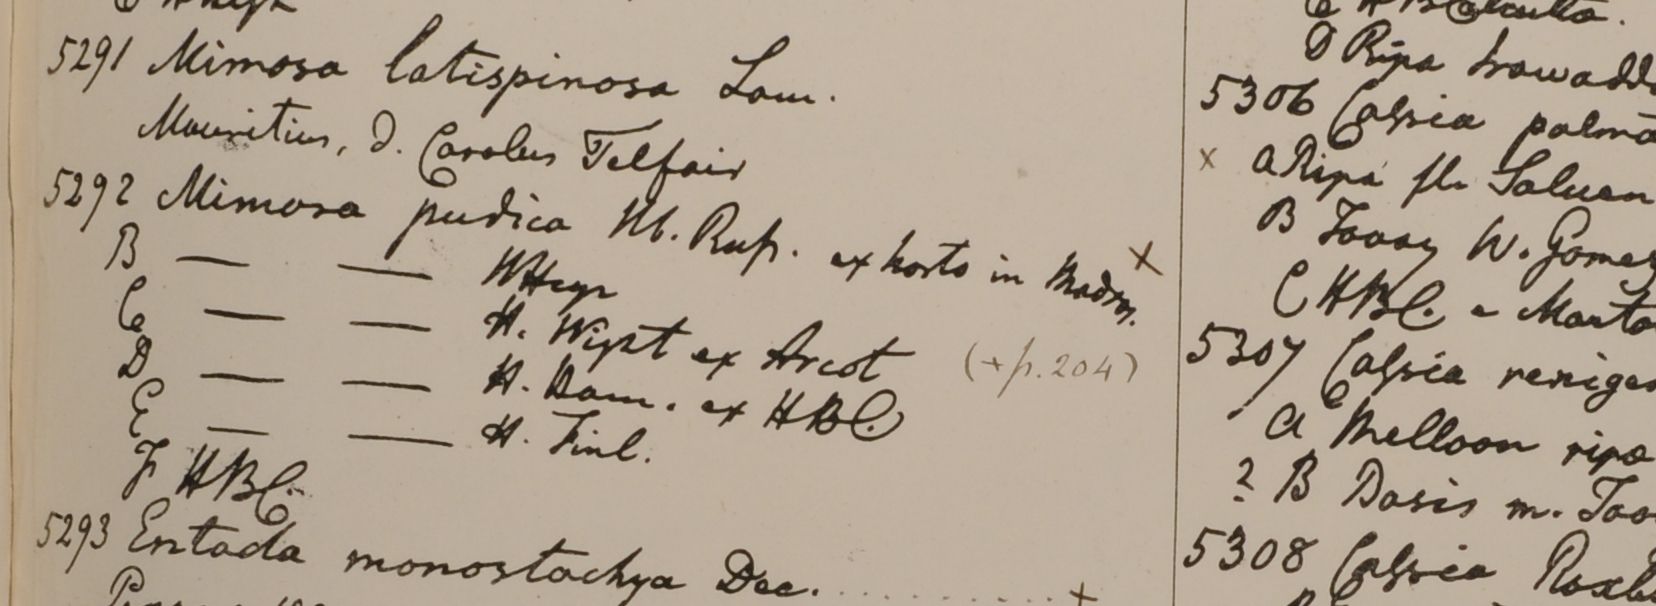 5291 Mimosa latispinosa Lam.
Mauritius, D. Carolus Telfair
5292 Mimosa pudica Hb. Rup. ex horto in Madrs. x
B — — HHeyn
C — — H. Wight ex Arcot (+p. 204)
D — — H. Ham. ex HBC
E — — H. Finl.
F HBC.
5293 Entada monostachya Dec. .......... +
D Ripa Irawadd
5306 Cassia palma
x a Ripa fl. Saluen
B Tavoy W. Gomez
C HBC. e Marta
5307 Cassia renige
a Melloon ripa
? B Dasis m. Tao
5308 Cassia Roxb